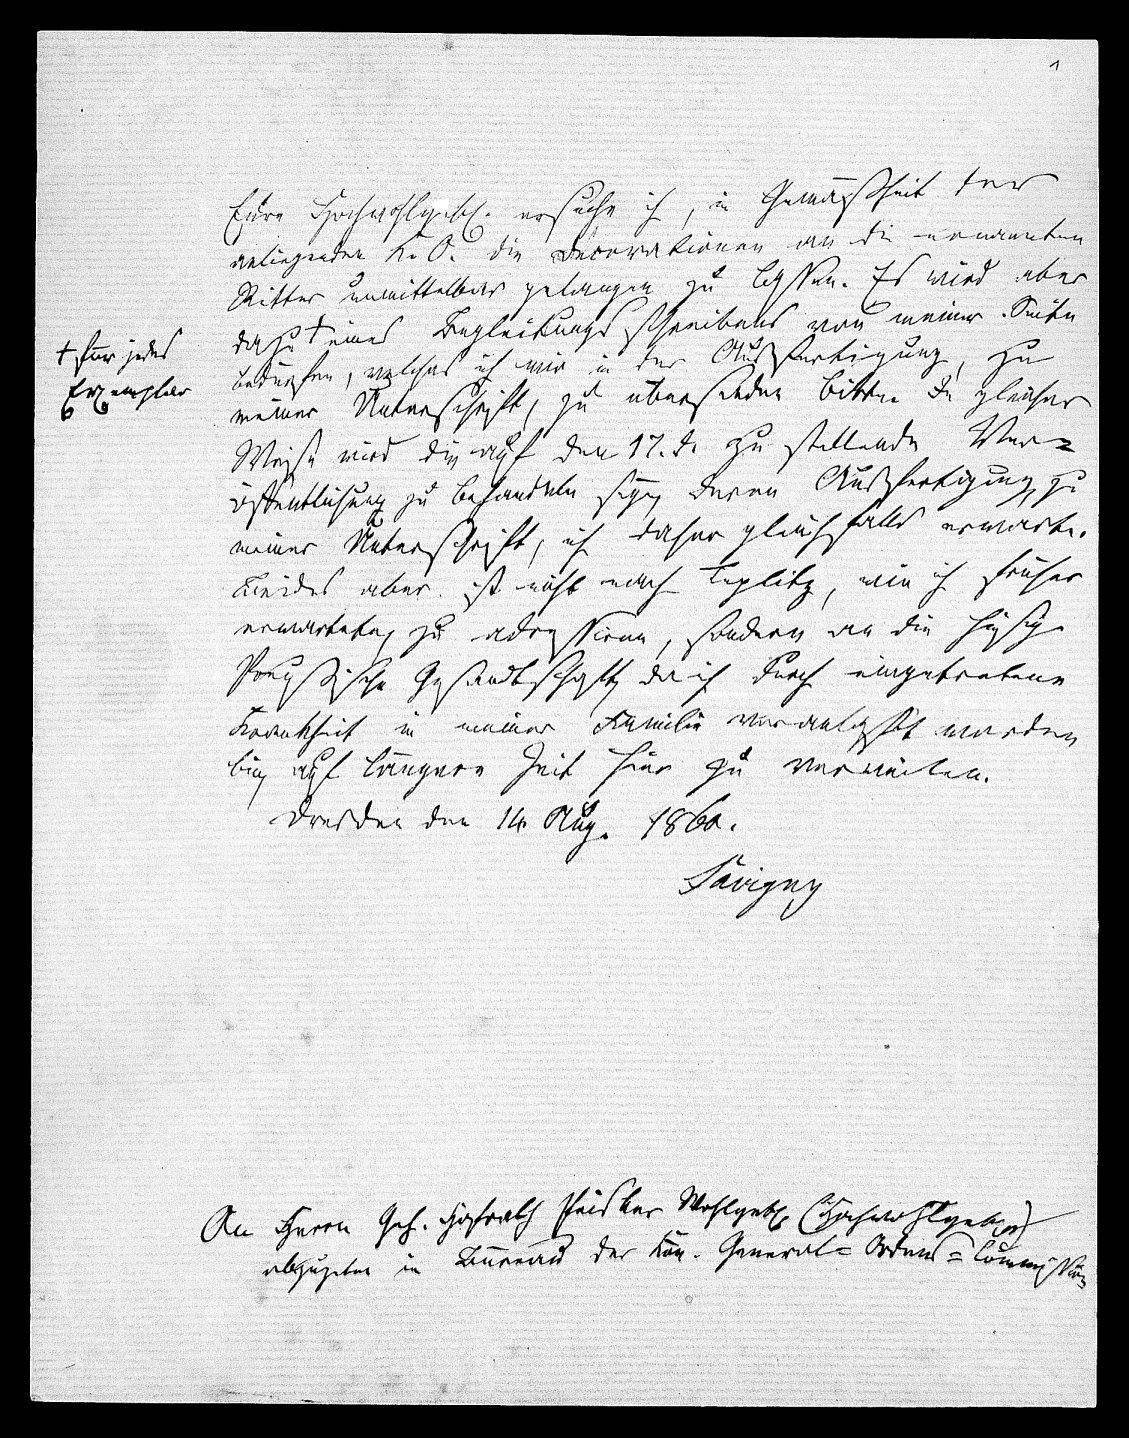 1
Eure Hochwohlgeb. ersuche ich, in Gemäßheit der
anliegenden K. O. die Decorationen an die ernannten
Ritter unmittelbar gelangen zu lassen. Es wird aber
dazu † eines Begleitungsschreibens von meiner Seite
† für jedes
Exemplar
bedürfen, welches ich mir in der Ausfertigung, zu
meiner Unterschrift, zu übersenden bitte. In gleicher
Weise wird die auf den 17. d. zu stellende Ver=
öffentlichung zu behandeln sein, deren Ausfertigung, zu
meiner Unterschrift, ich daher gleichfalls erwarte.
Beides aber ist nicht nach Teplitz, wie ich früher
erwartete, zu adressiren, sondern an die hiesige
Preußische Gesandtschaft, da ich durch eingetretene
Krankheit in meiner Familie veranlaßt worden
bin, auf längere Zeit hier zu verweilen.
Dresden den 14 Aug. 1860.
Savigny
An Herrn Geh. Hofrath Wohlgeb. (Hochwohlgeb.)
abzugeben im Büreau der Kön. General=Ordens=Commission